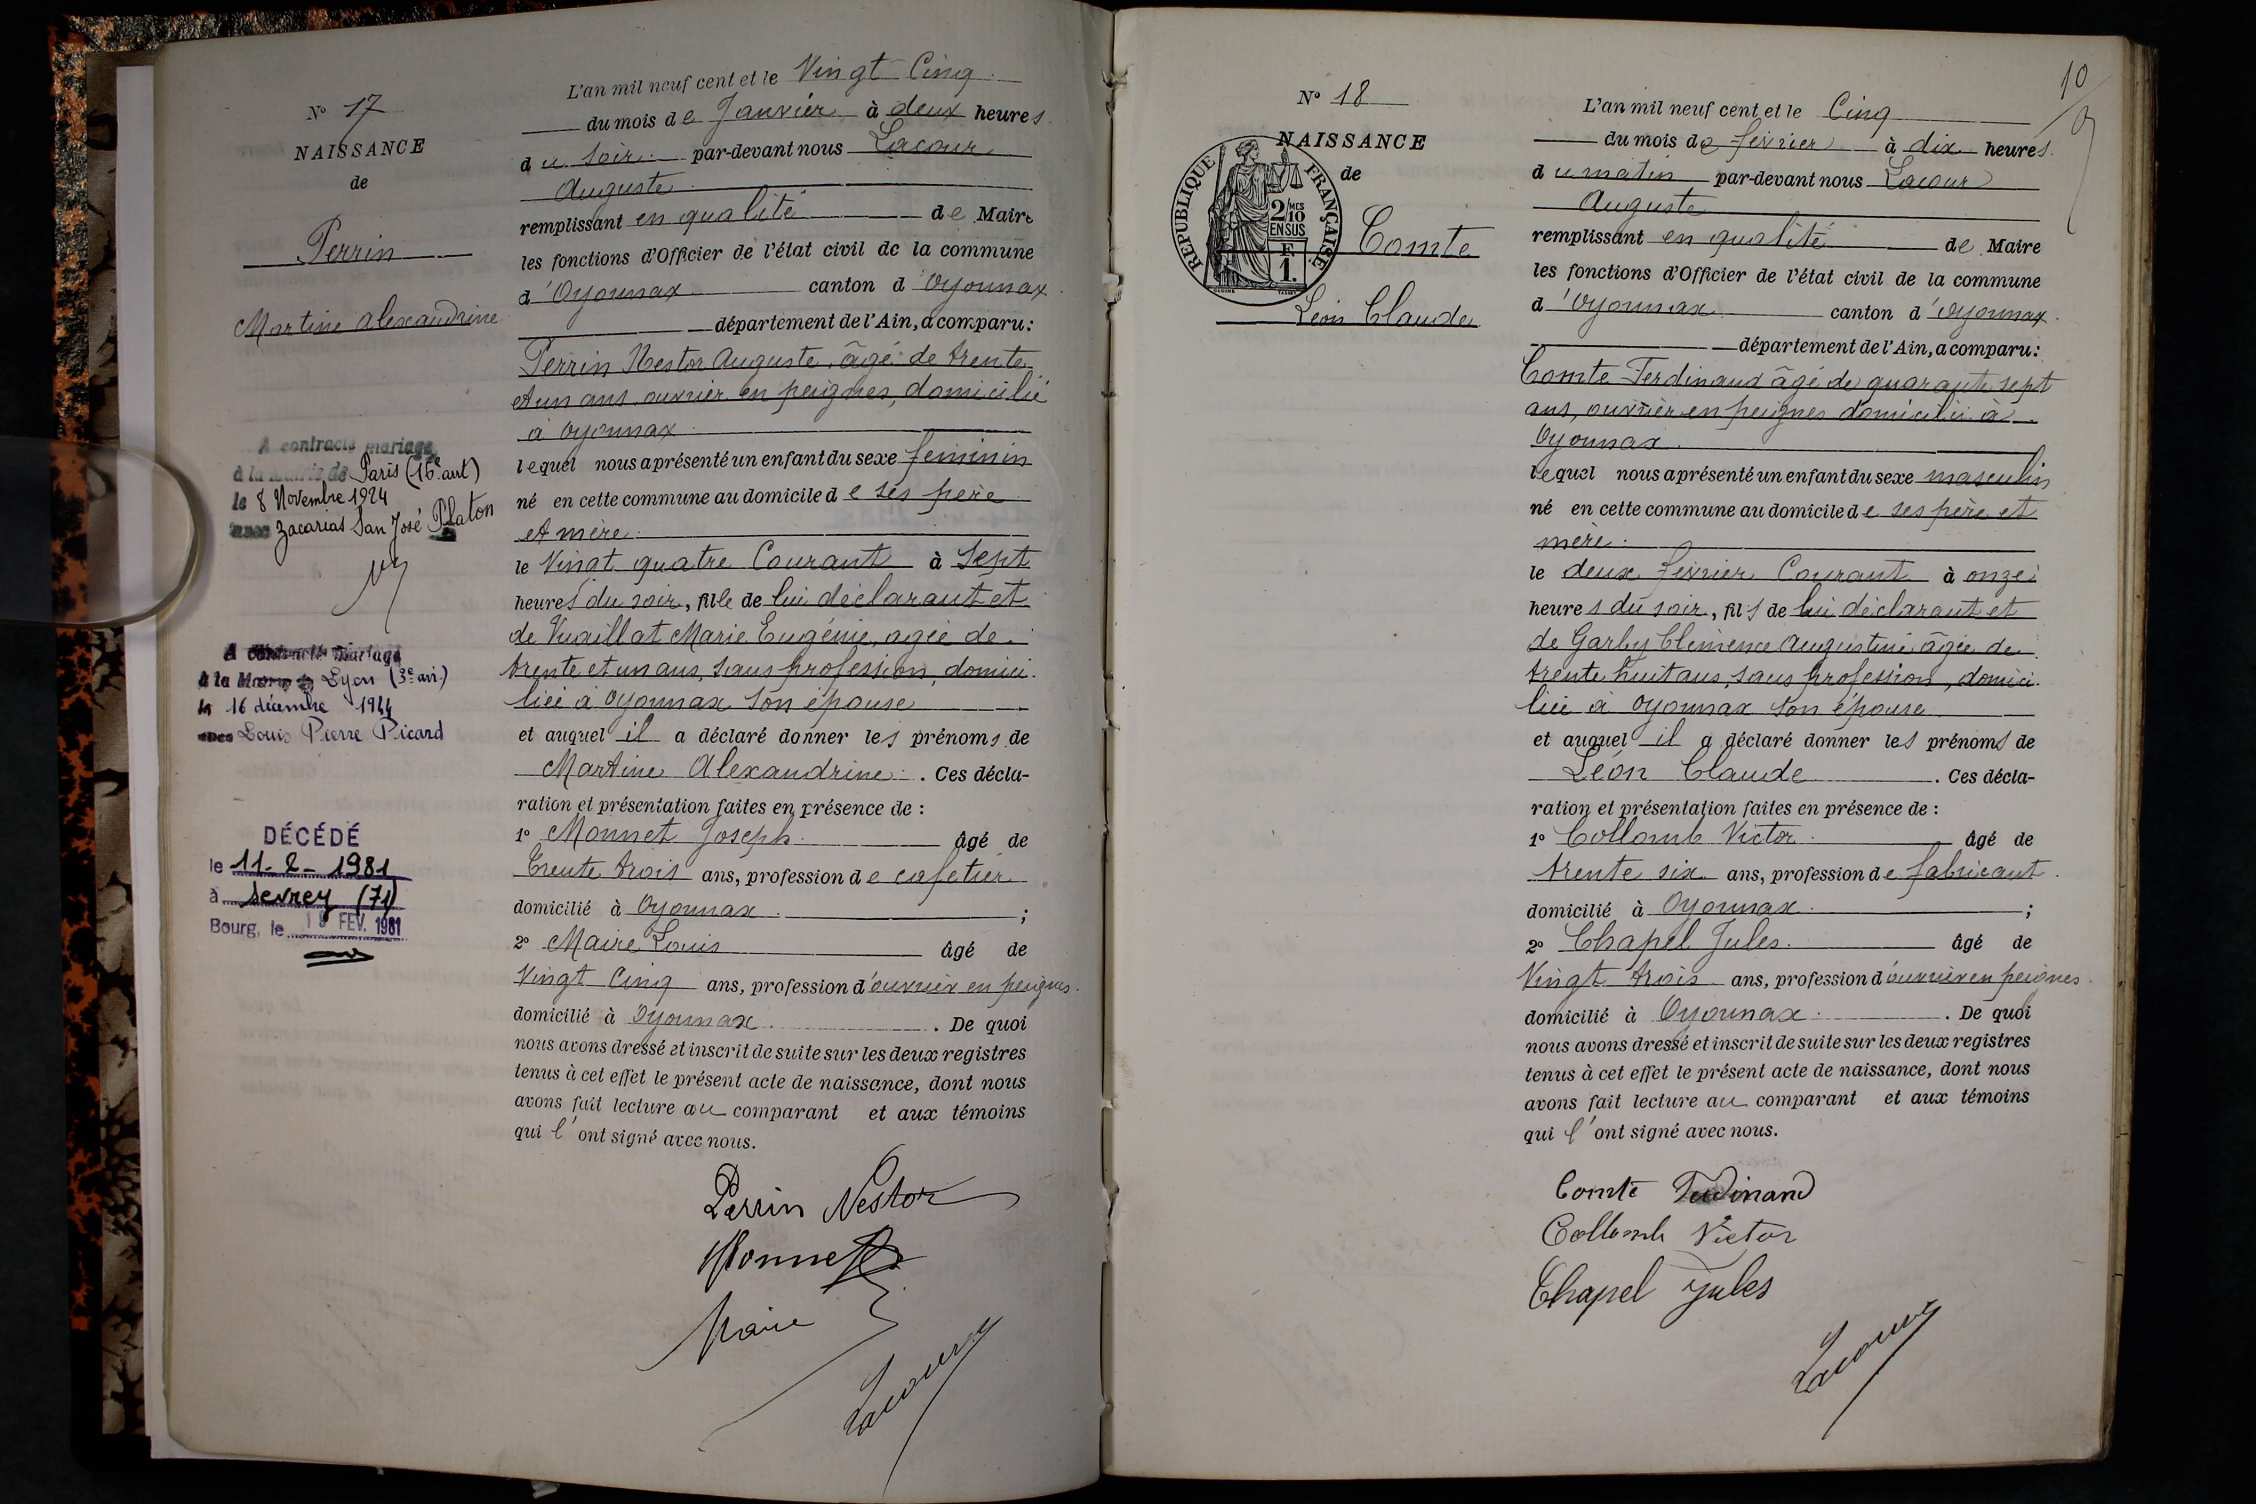 N° 17
NAISSANCE
de
Perrin
Martine Alexandrine
A contracté mariage
à la mairie de Paris (16e art)
le 8 Novembre 1924
avec Zacarias San José Platon
A contracté mariage
à la Mairie de Lyon (3e arr.)
le 16 décembre 1944
avec Louis Pierre Picard
DÉCÉDÉ
le 11-2-1981
à Sevrey (71)
Bourg, le FEV. 1981
L'an mil neuf cent et le Vingt Cinq
du mois de Janvier à deux heures
du soir par-devant nous Lacour
Auguste
remplissant en qualité de Maire
les fonctions d'Officier de l'état civil de la commune
d'Oyonnax canton d'Oyonnax
département de l'Ain, a comparu :
Perrin Nestor Auguste, âgé de trente
et un ans, ouvrier en peignes, domicilié
à Oyonnax
lequel nous a présenté un enfant du sexe féminin
né en cette commune au domicile de ses père
et mère
le Vingt quatre Courant à Sept
heures du soir, fille de lui déclarant et
de Vuaillat Marie Eugénie, agée de
trente et un ans, sans profession, domici
liée à Oyonnax son épouse
et auquel il a déclaré donner les prénoms de
Martine Alexandrine. Ces décla-
ration et présentation faites en présence de :
1° Monnet Joseph âgé de
Trente trois ans, profession de cafetier
domicilié à Oyonnax ;
2° Maire Louis âgé de
Vingt Cinq ans, profession d'ouvrier en peignes
domicilié à Oyonnax. De quoi
nous avons dressé et inscrit de suite sur les deux registres
tenus à cet effet le présent acte de naissance, dont nous
avons fait lecture au comparant et aux témoins
qui l'ont signé avec nous.
Perrin Nestor
Monnet
Maire
Lacour
10
N° 18
NAISSANCE
de
RÉPUBLIQUE FRANÇAISE
2/10 MES
EN SUS
F
1.
Comte
Léon Claude
L'an mil neuf cent et le Cinq
du mois de février à dix heures
du matin par-devant nous Lacour
Auguste
remplissant en qualité de Maire
les fonctions d'Officier de l'état civil de la commune
d'Oyonnax canton d'Oyonnax
département de l'Ain, a comparu :
Comte Ferdinand âgé de quarante sept
ans, ouvrier en peignes domicilié à
Oyonnax
lequel nous a présenté un enfant du sexe masculin
né en cette commune au domicile de ses père et
mère
le deux février Courant à onze
heures du soir, fils de lui déclarant et
de Garby Clémence Augustine âgée de
trente huit ans, sans profession, domici
liée à Oyonnax son épouse
et auquel il a déclaré donner les prénoms de
Léon Claude. Ces décla-
ration et présentation faites en présence de :
1° Collomb Victor âgé de
trente six ans, profession de fabricant
domicilié à Oyonnax ;
2° Chapel Jules âgé de
Vingt trois ans, profession d'ouvrier en peignes
domicilié à Oyonnax. De quoi
nous avons dressé et inscrit de suite sur les deux registres
tenus à cet effet le présent acte de naissance, dont nous
avons fait lecture au comparant et aux témoins
qui l'ont signé avec nous.
Comte Ferdinand
Collomb Victor
Chapel Jules
Lacour